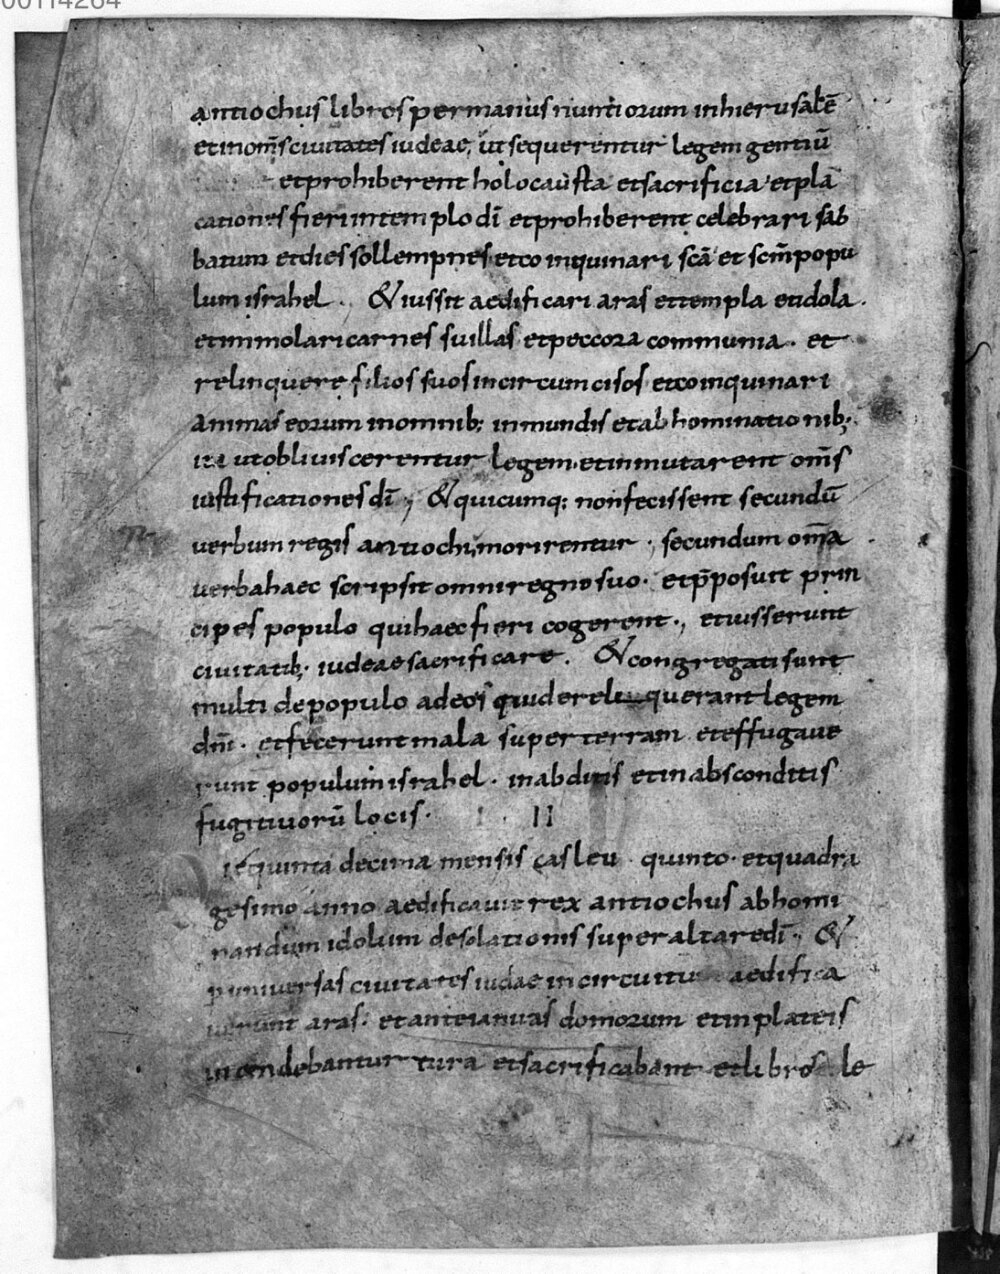 00114264
antiochus libros per manus nuntiorum in hierusalē
et in om̄s ciuitates iudeae, ut sequerentur legem gentiū
et prohiberent holocausta et sacrificia et pla
cationes fieri in templo dī et prohiberent celebrari sab
batum et dies sollempnes et coinquinari scā et scm̄ popu
lum israhel. & iussit aedificari aras et templa et idola.
et immolari carnes suillas et peccora communia. et
relinquere filios suos incircumcisos et coinquinari
animas eorum in omnib; inmundis et abhominationib;
ita ut obliuiscerentur legem. et inmutarent om̄s
iustificationes dī; & quicumq; non fecissent secundū
verbum regis antiochi, morirentur. secundum om̄a
verba haec scripsit omni regno suo. et p̄posuit prin
cipes populo qui haec fieri cogerent., et iusserunt
ciuitatib; iudeae sacrificare. & congregati sunt
multi de populo ad eos qui dereliquerant legem
dm̄. et fecerunt mala super terram et effugaue
runt populum israhel. in abditis et in absconditis
fugitiuorū locis. II
quinta decima mensis casleu. quinto. et quadra
gesimo anno aedificauit rex antiochus abhomi
nandum idolum desolationis super altare dī. &
p uniuersas ciuitates iudae in circuitu aedifica
uerunt aras. et ante ianuas domorum et in plateis
incendebantur tura et sacrificabant et libros le